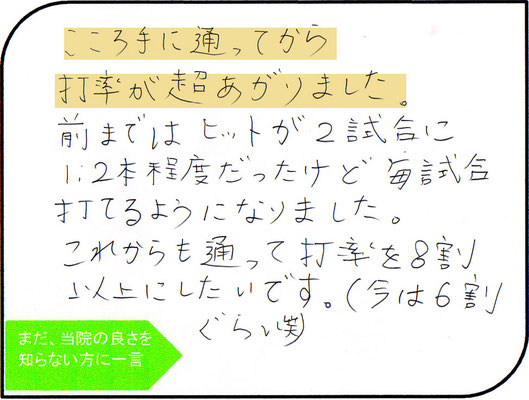 こころ手に通ってから
打率が超あがりました。
前まではヒットが2試合に
1,2本程度だったけど毎試合
打てるようになりました。
これからも通って打率を8割
以上にしたいです。(今は6割
ぐらい笑)
まだ、当院の良さを
知らない方に一言